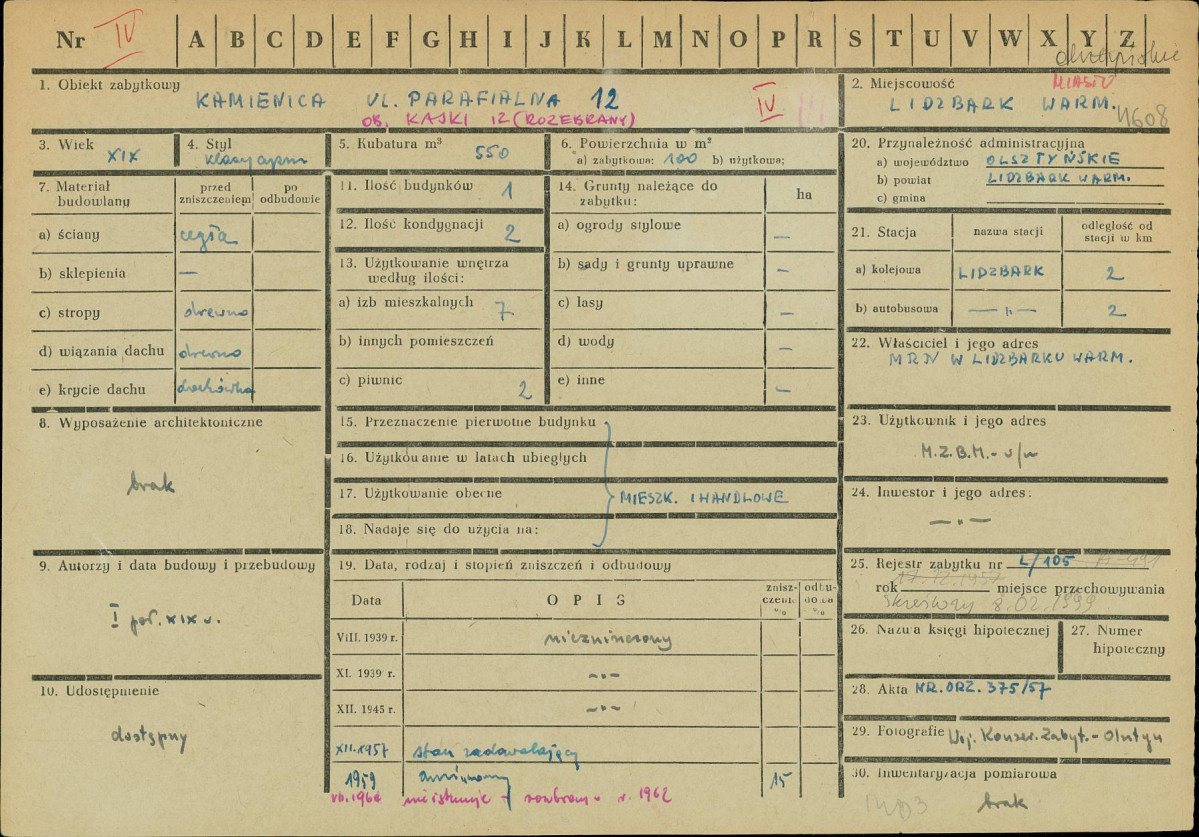 Nr IV A B C D E F G H I J K L M N O P R S T U V W X Y Z
1. Obiekt zabytkowy
KAMIENICA UL. PARAFIALNA 12
OB. KAJKI 12 (ROZEBRANY)
IV
2. Miejscowość
MIASTO
LIDZBARK WARM.
4608
3. Wiek
XIX
4. Styl
klasycyzm
5. Kubatura m³
550
6. Powierzchnia w m²
a) zabytkowa: 100 b) użytkowa:
20. Przynależność administracyjna
a) województwo OLSZTYŃSKIE
b) powiat LIDZBARK WARM.
c) gmina
7. Materiał budowlany
przed zniszczeniem
po odbudowie
a) ściany cegła
b) sklepienia —
c) stropy drewno
d) wiązania dachu drewno
e) krycie dachu dachówka
11. Ilość budynków 1
12. Ilość kondygnacji 2
13. Użytkowanie wnętrza według ilości:
a) izb mieszkalnych 7
b) innych pomieszczeń
c) piwnic 2
14. Grunty należące do zabytku:
ha
a) ogrody stylowe —
b) sady i grunty uprawne —
c) lasy —
d) wody —
e) inne —
21. Stacja
nazwa stacji
odległość od stacji w km
a) kolejowa LIDZBARK 2
b) autobusowa —„— 2
22. Właściciel i jego adres
MRN W LIDZBARKU WARM.
8. Wyposażenie architektoniczne
brak
15. Przeznaczenie pierwotne budynku
16. Użytkowanie w latach ubiegłych
17. Użytkowanie obecne
MIESZK. I HANDLOWE
18. Nadaje się do użycia na:
23. Użytkownik i jego adres
M.Z.B.M. - j/w
24. Inwestor i jego adres:
—„—
9. Autorzy i data budowy i przebudowy
I poł. XIX w.
19. Data, rodzaj i stopień zniszczeń i odbudowy
Data
OPIS
zniszczenia %
odbudowa %
VIII. 1939 r. niezniszczony
XI. 1939 r. —„—
XII. 1945 r. —„—
XII. 1957 stan zadawalający
1959 15
VII. 1964 nie istnieje - rozebrany w r. 1962
25. Rejestr zabytku nr L/105 A-491
rok 17.12.1957 miejsce przechowywania
Skreślony 8.02.1999
26. Nazwa księgi hipotecznej
27. Numer hipoteczny
10. Udostępnienie
dostępny
28. Akta NR. ORZ. 375/57
29. Fotografie Woj. Konser. Zabyt. - Olsztyn
30. Inwentaryzacja pomiarowa
brak